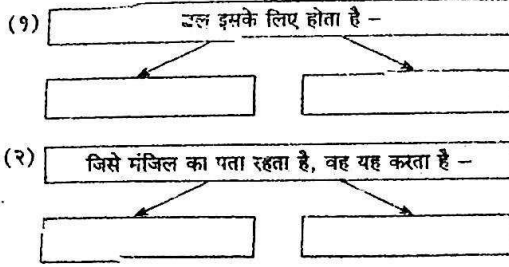 (१) बल इसके लिए होता है –
(२) जिसे मंजिल का पता रहता है, वह यह करता है –